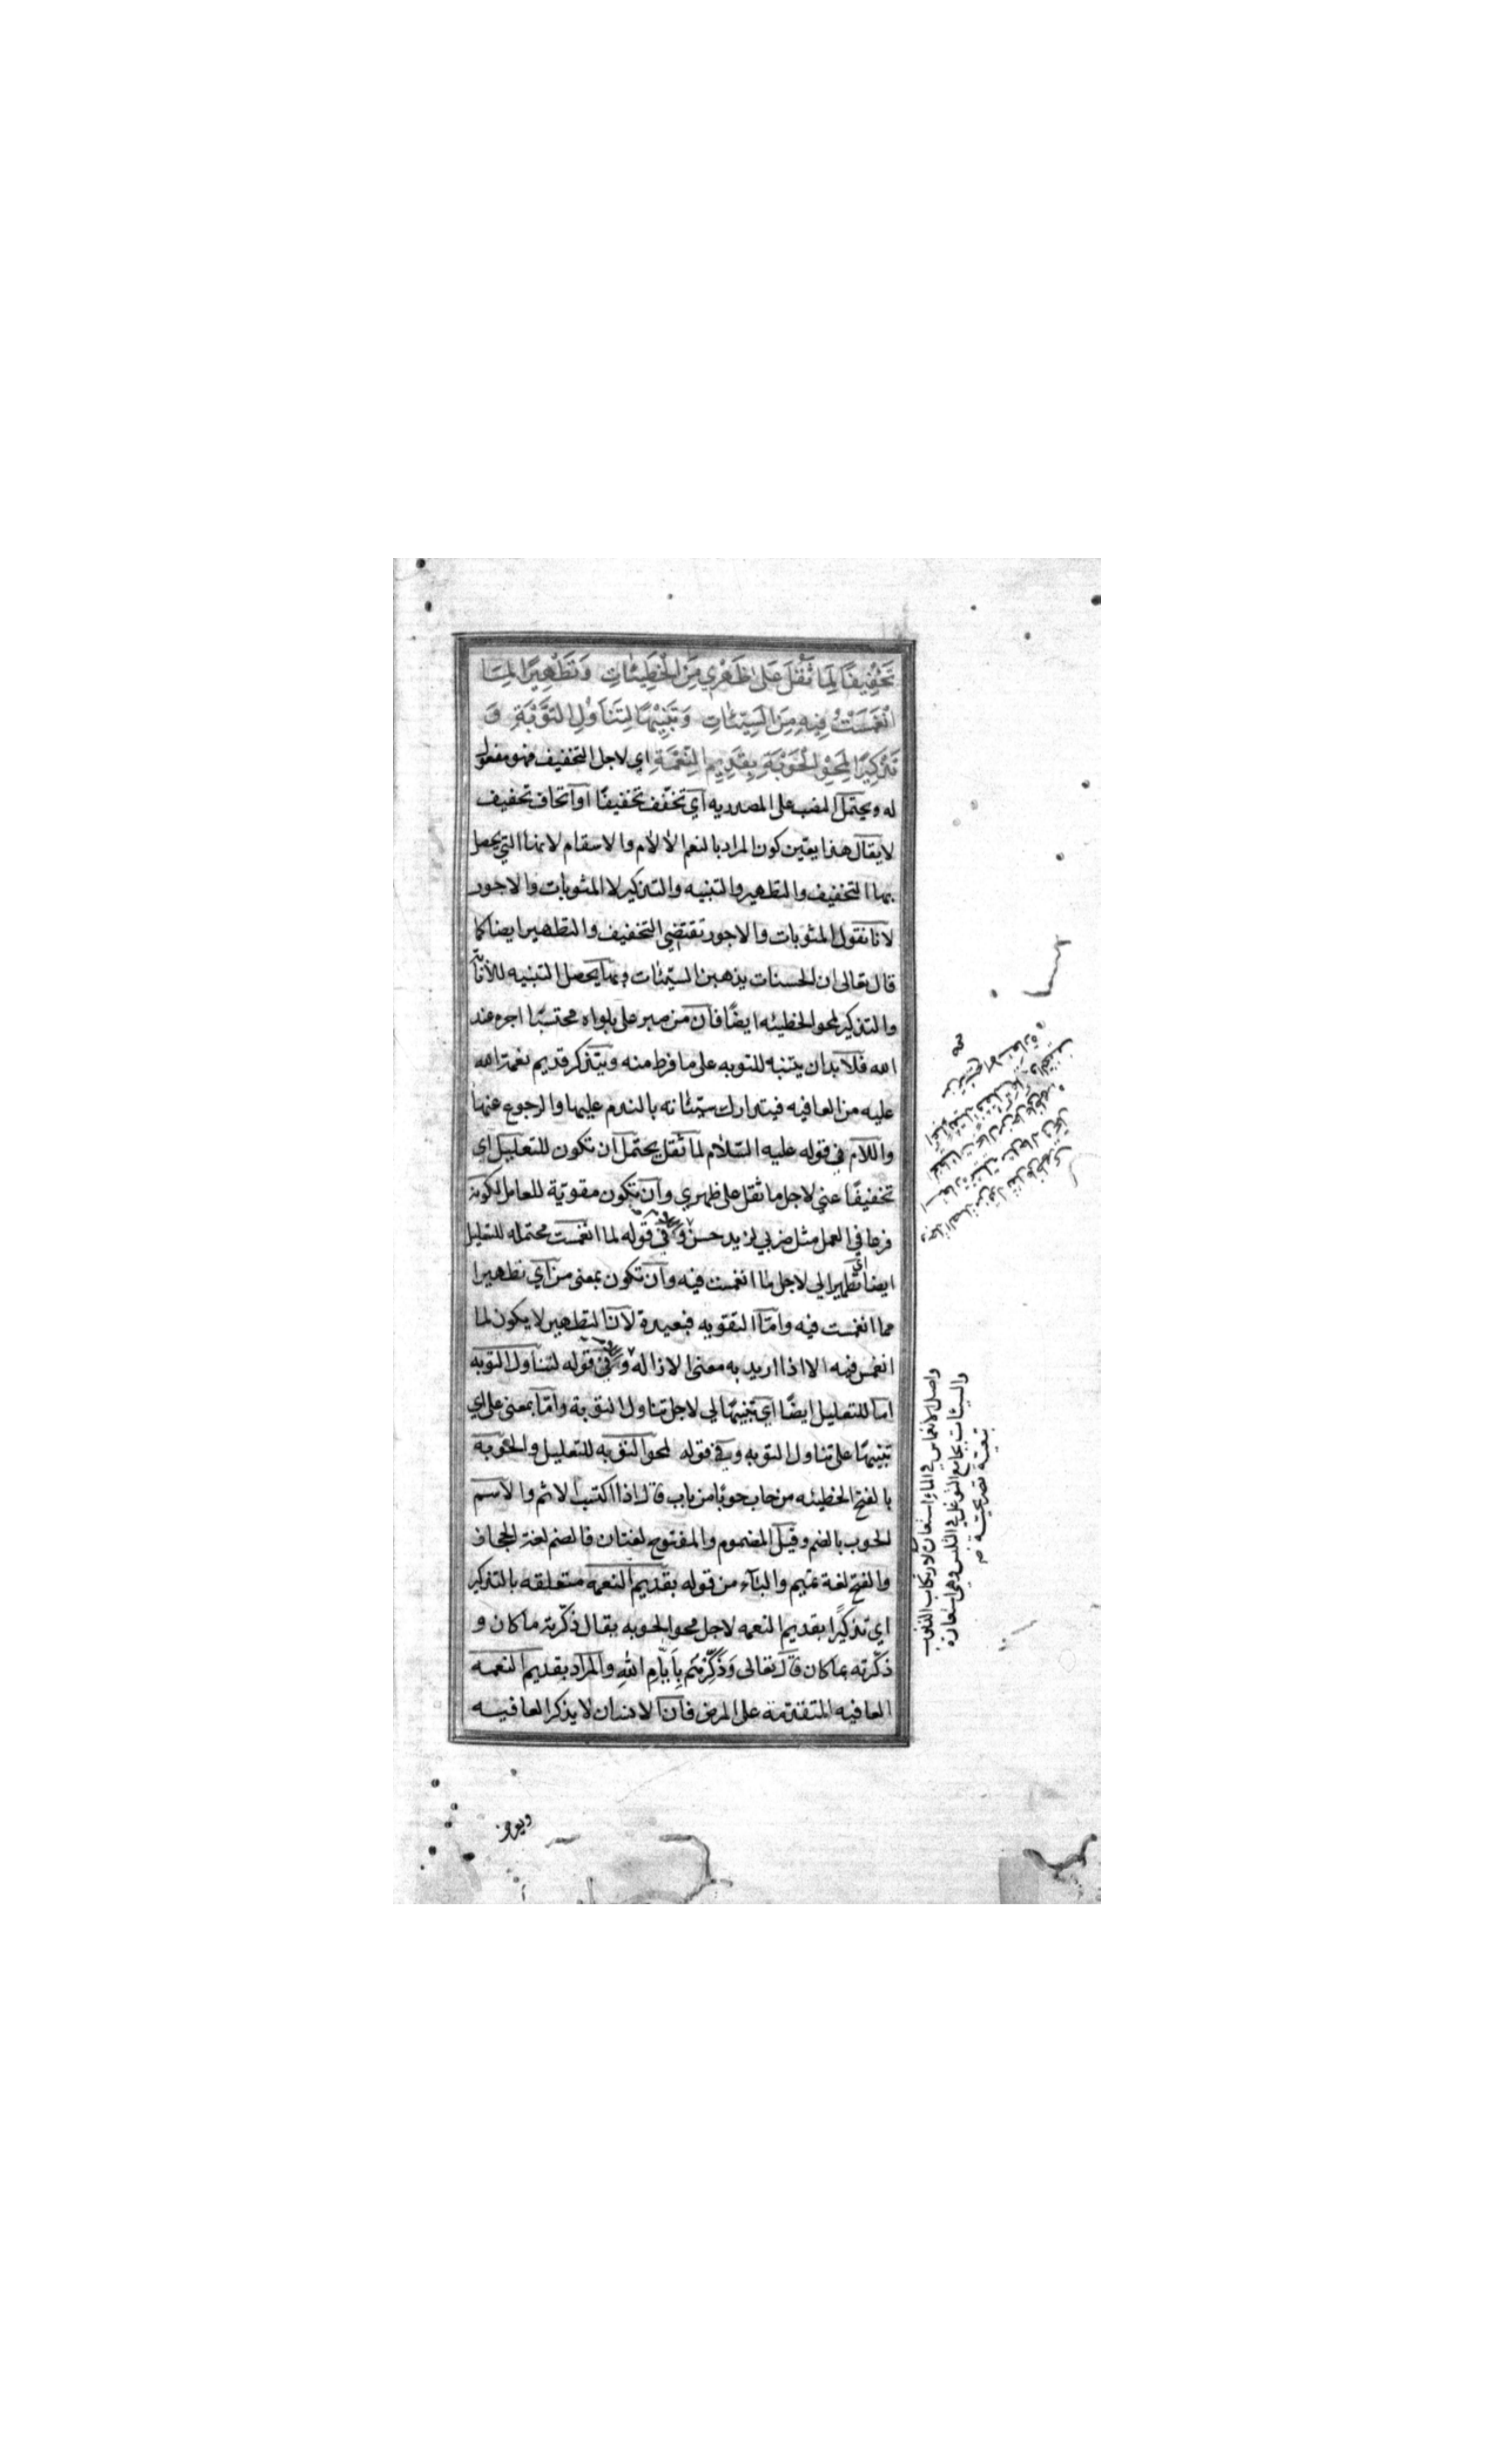 تَخْفِيفًا لِمَا ثَقُلَ عَلى ظَهْرِي مِنَ الْخَطِيئَاتِ وَتَطْهِيرًا لِمَا
انْغَمَسْتُ فِيهِ مِنَ السَّيِّئَاتِ وَتَنْبِيهًا لِتَنَاوُلِ التَّوْبَةِ وَ
تَذْكِيرًا لِمَحْوِ الْحَوْبَةِ بِقَدِيمِ النِّعْمَةِ اي لاجل التخفيف فهو مفعول
له ويحتمل النصب على المصدريه اي تخفّف تخفيفًا او اتحاف تخفيف
لا يقال هذا يعيّن كون المراد بالنعم الآلام والاسقام لانها التي يحصل
بها التخفيف والتطهير والتنبيه والتذكير لا المثوبات والاجور
لانا نقول المثوبات والاجور تقتضي التخفيف والتطهير ايضا كما
قال تعالى ان الحسنات يذهبن السيّئات وبها يحصل التنبيه للأنابة
والتذكير لمحو الخطيئه ايضًا فان من صبر على بلواه محتسبًا اجره عند
الله فلا بد ان يتنبه للتوبه على ما فرط منه ويتذكر قديم نعمة الله
عليه من العافيه فيتدارك سيّئاته بالندم عليها والرجوع عنها
واللام في قوله عليه السّلام لما ثقل يحتمل ان تكون للتعليل اي
تخفيفًا عني لاجل ما ثقل على ظهري وان تكون مقويّة للعامل لكونه
فرعا في العمل مثل ضربي لزيد حسن وفي قوله لما انغمست محتمله للتعليل
ايضا اي تطهيرا لي لاجل ما انغمست فيه وان تكون بمعنى من اي تطهيرا
مما انغمست فيه وامّا التقويه فبعيدة لان التطهير لا يكون لما
انغمس فيه الا اذا اريد به معنى الازاله وفي قوله لتناول التوبه
اما للتعليل ايضًا اي تنبيهًا لي لاجل تناول التوبة وامّا بمعنى على اي
تنبيهًا على تناول التوبه وفي قوله لمحو الحوبه للتعليل والحَوبه
بالفتح الخطيئه من حاب حوبًا من باب قال اذا اكتسب الاثم والاسم
الحوب بالضم وقيل المضموم والمفتوح لغتان فالضم لغة الحجاز
والفتح لغة تميم والباء من قوله بقديم النعمه متعلقه بالتذكير
اي تذكيرًا بقديم النعمه لاجل محو الحوبه يقال ذكّرته ما كان و
ذكّرته بما كان قال تعالى وَذَكِّرْهُم بِأَيَّامِ اللهِ والمراد بقديم النعمه
العافيه المتقدّمة على المرض فان الانسان لا يذكر العافيه
واصل الانغماس في الماء استعاره لارتكاب الذنوب
والسيئات بجامع التوغل في التلبس وهي استعارة
تبعيّة تصريحيّة